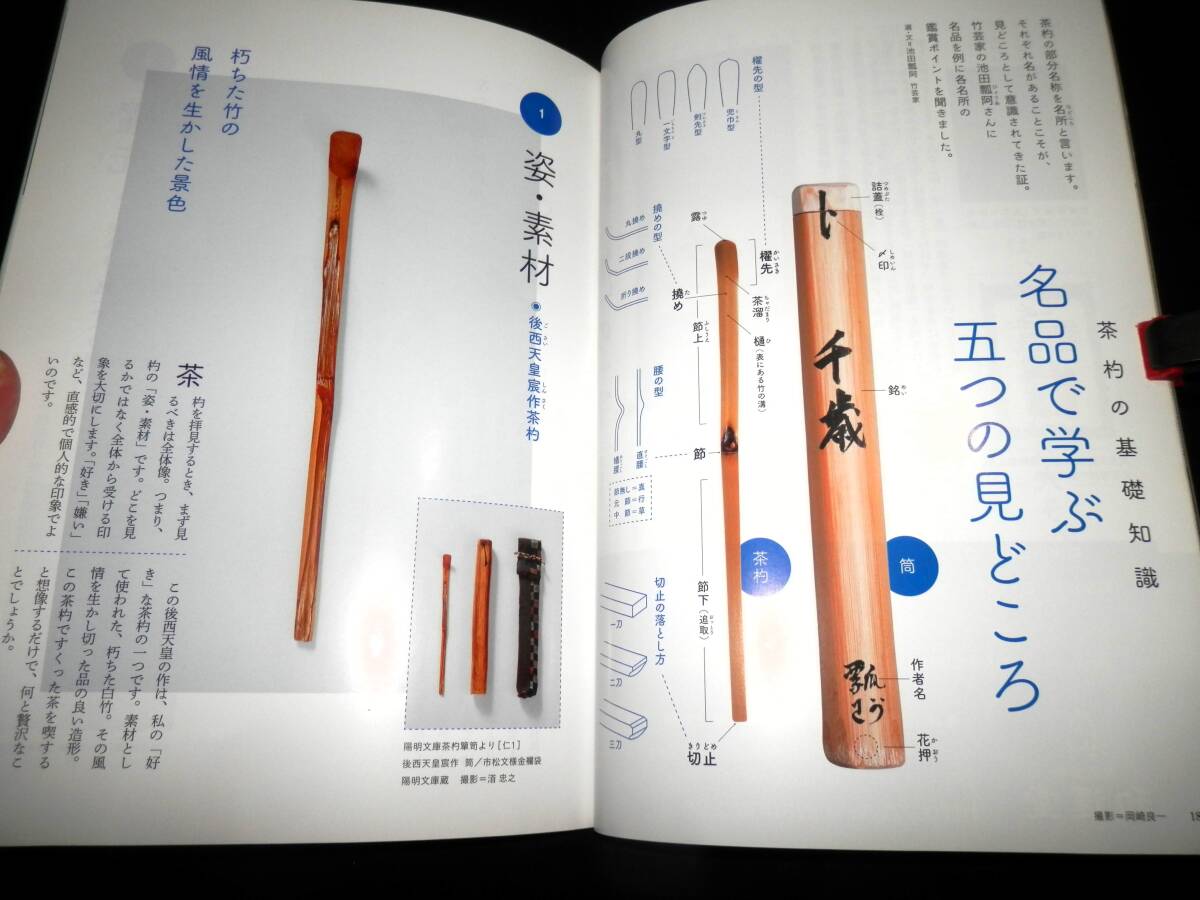 茶杓の基礎知識
名品で学ぶ
五つの見どころ
茶杓の部分名称を名所と言います。
それぞれ名があることこそが、
見どころとして意識されてきた証。
竹芸家の池田瓢阿さんに
名品を例に各名所の
鑑賞ポイントを聞きました。
選・文=池田瓢阿 竹芸家
筒
詰蓋(栓)
つめぶた
〆印
しめいん
銘
めい
作者名
花押
かおう
千歳
茶杓
櫂先
かいさき
露
つゆ
茶溜
ちゃだまり
樋(表にある竹の溝)
ひ
撓め
た
節上
ふしうえ
節
節下(追取)
おっとり
切止
きりどめ
櫂先の型
兜巾型
剣先型
一文字型
丸型
撓めの型
丸撓め
二段撓め
折り撓め
腰の型
直腰
蟻腰
節無し=真
元節=行
中節=草
切止の落とし方
一刀
二刀
三刀
撮影=岡崎良一
18
1
姿・素材
後西天皇宸作茶杓
ごさい
しんさく
朽ちた竹の
風情を生かした景色
茶杓を拝見するとき、まず見
るべきは全体像。つまり、
杓の「姿・素材」です。どこを見
るかではなく全体から受ける印
象を大切にします。「好き」「嫌い」
など、直感的で個人的な印象でよ
いのです。
この後西天皇の作は、私の「好
き」な茶杓の一つです。素材とし
て使われた、朽ちた白竹。その風
情を生かし切った品の良い造形。
この茶杓ですくった茶を喫する
と想像するだけで、何と贅沢なこ
とでしょうか。
陽明文庫茶杓簞笥より[仁1]
後西天皇宸作 筒/市松文様金襴袋
陽明文庫蔵 撮影=渞 忠之